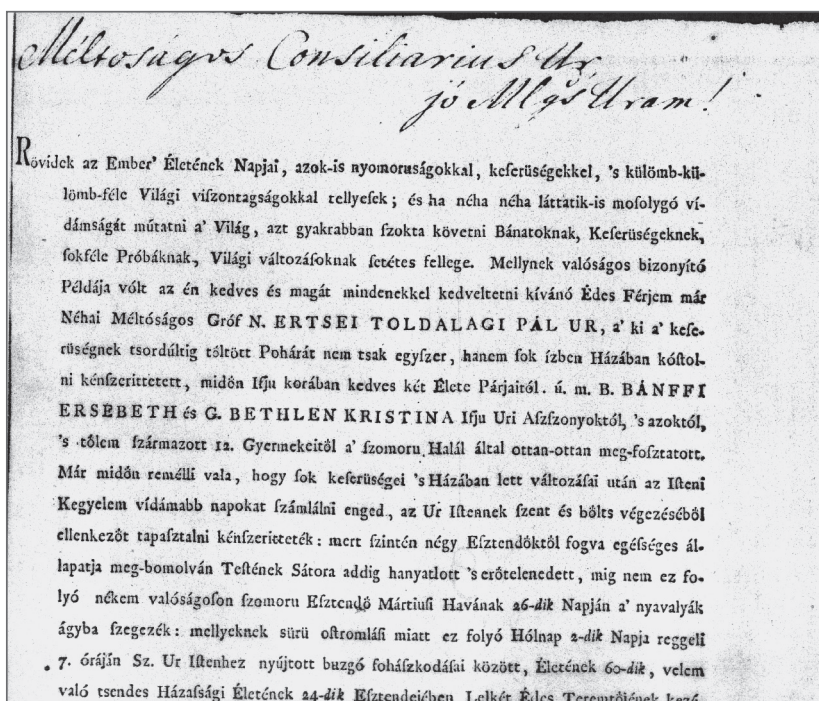 Méltoságos Consiliarius Ur
jó Mlgs Uram!
Rövidek az Ember' Életének Napjai, azok-is nyomoruságokkal, keſerüségekkel, 's külömb-kü-
lömb-féle Világi viſzontagságokkal tellyeſek; és ha néha néha láttatik-is moſolygó ví-
dámságát mútatni a' Világ, azt gyakrabban ſzokta követni Bánatoknak, Keſerüségeknek,
ſokféle Próbáknak, Világi változáſoknak ſetétes fellege. Mellynek valóságos bizonyító
Példája vólt az én kedves és magát mindenekkel kedveltetni kívánó Édes Férjem már
Néhai Méltóságos Gróf N. ERTSEI TOLDALAGI PÁL UR, a' ki a' keſe-
rüségnek tsordúltig töltött Pohárát nem tsak egyſzer, hanem ſok ízben Házában kóſtol-
ni kénſzerittetett, midőn Iſju korában kedves két Élete Párjaitól. ú. m. B. BÁNFFI
ERSEBETH és G. BETHLEN KRISTINA Iſju Uri Aſzſzonyoktól, 's azoktól,
's tőlem ſzármazott 12. Gyermekeitől a' ſzomoru Halál által ottan-ottan meg-foſztatott.
Már midőn reménlli vala, hogy ſok keſerüségei 's Házában lett változáſai után az Iſteni
Kegyelem vídámabb napokat ſzámlálni enged, az Ur Iſtennek ſzent és bölts végezéséből
ellenkezőt tapaſztalni kénſzerítteték: mert ſzintén négy Eſztendőktől fogva egéſséges ál-
lapatja meg-bomolván Teſtének Sátora addig hanyatlott 's erőtelenedett, mig nem ez fo-
lyó nékem valóságoſon ſzomoru Eſztendő Mártiuſi Havának 26-dik Napján a' nyavalyák
ágyba ſzegezék: mellyeknek sürü oſtromláſi miatt ez folyó Hólnap 2-dik Napja reggeli
7. óráján Sz. Ur Iſtenhez nyújtott buzgó foháſzkodáſai között, Életének 60-dik, velem
való tsendes Házaſsági Életének 24-dik Eſztendejében Lelkét Édes Teremtőjének kezé-